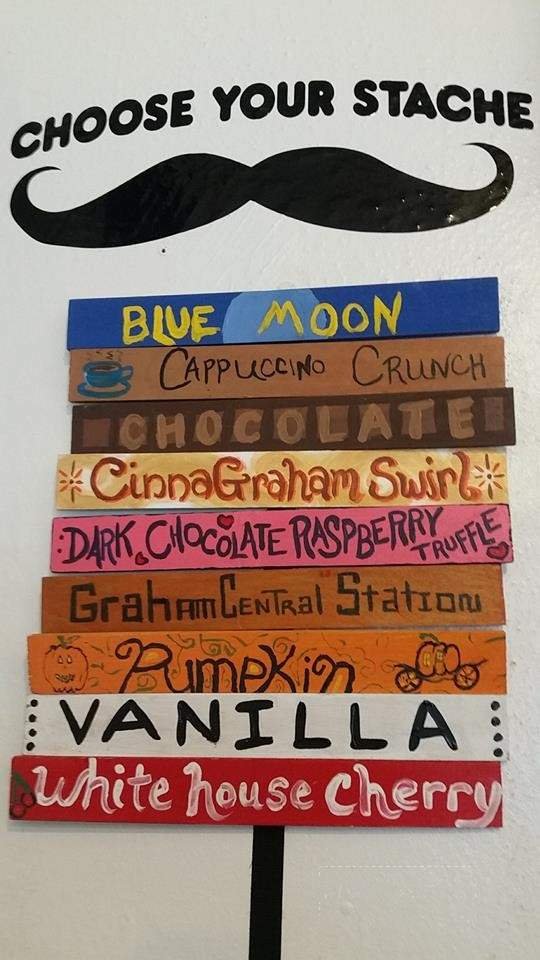 CHOOSE YOUR STACHE
BLUE MOON
CAPPUCCINO CRUNCH
CHOCOLATE
CinnaGraham Swirl
DARK CHOCOLATE RASPBERRY TRUFFLE
Graham Central Station
Pumpkin
VANILLA
white house cherry